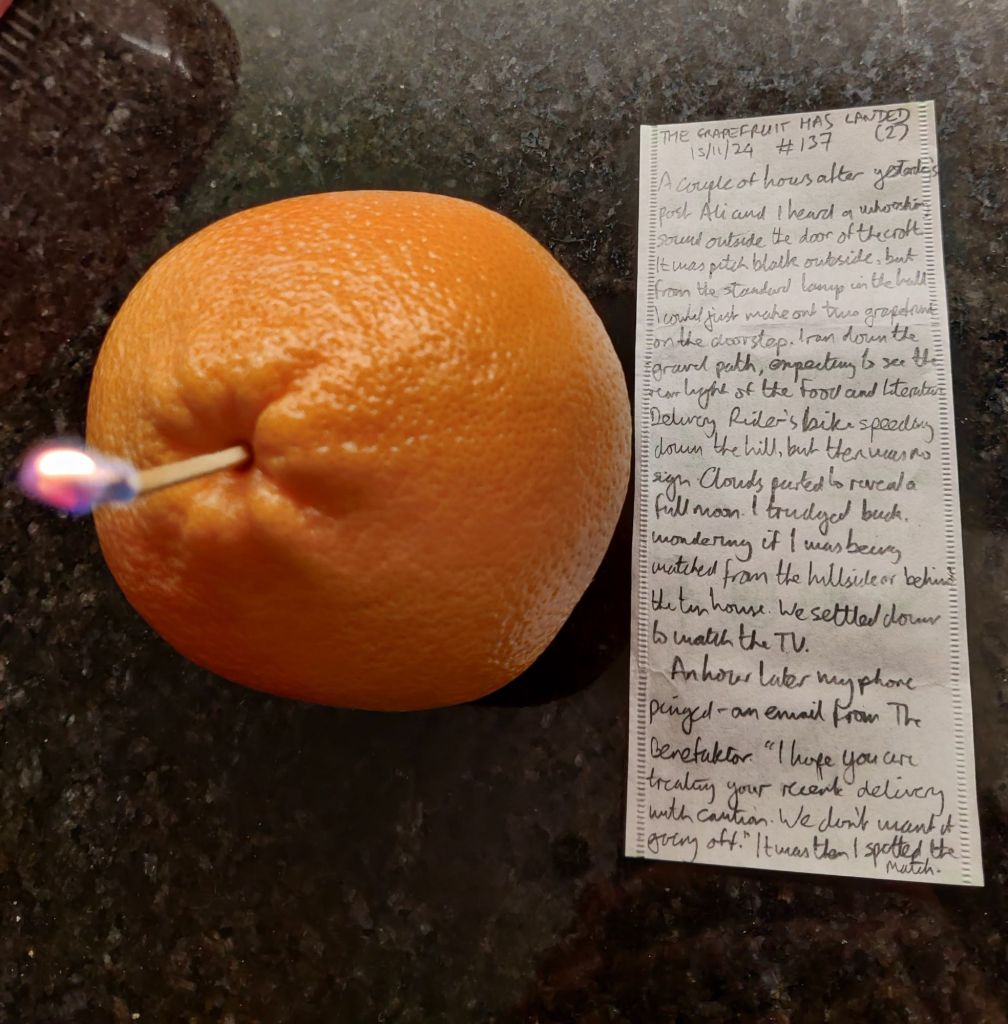 THE GRAPEFRUIT HAS LANDED
15/11/24 #137 (2)
A couple of hours after yesterday's
post Ali and I heard a whooshing
sound outside the door of the croft.
It was pitch black outside, but
from the standard lamp in the hall
I could just make out two grapefruit
on the doorstep. I ran down the
gravel path, expecting to see the
rear light of the Food and Literature
Delivery Rider's bike speeding
down the hill, but there was no
sign. Clouds parted to reveal a
full moon. I trudged back,
wondering if I was being
watched from the hillside or behind
the tin house. We settled down
to watch the TV.
An hour later my phone
pinged - an email from The
Benefaktor. "I hope you are
treating your recent delivery
with caution. We don't want it
going off." It was then I spotted the
match.